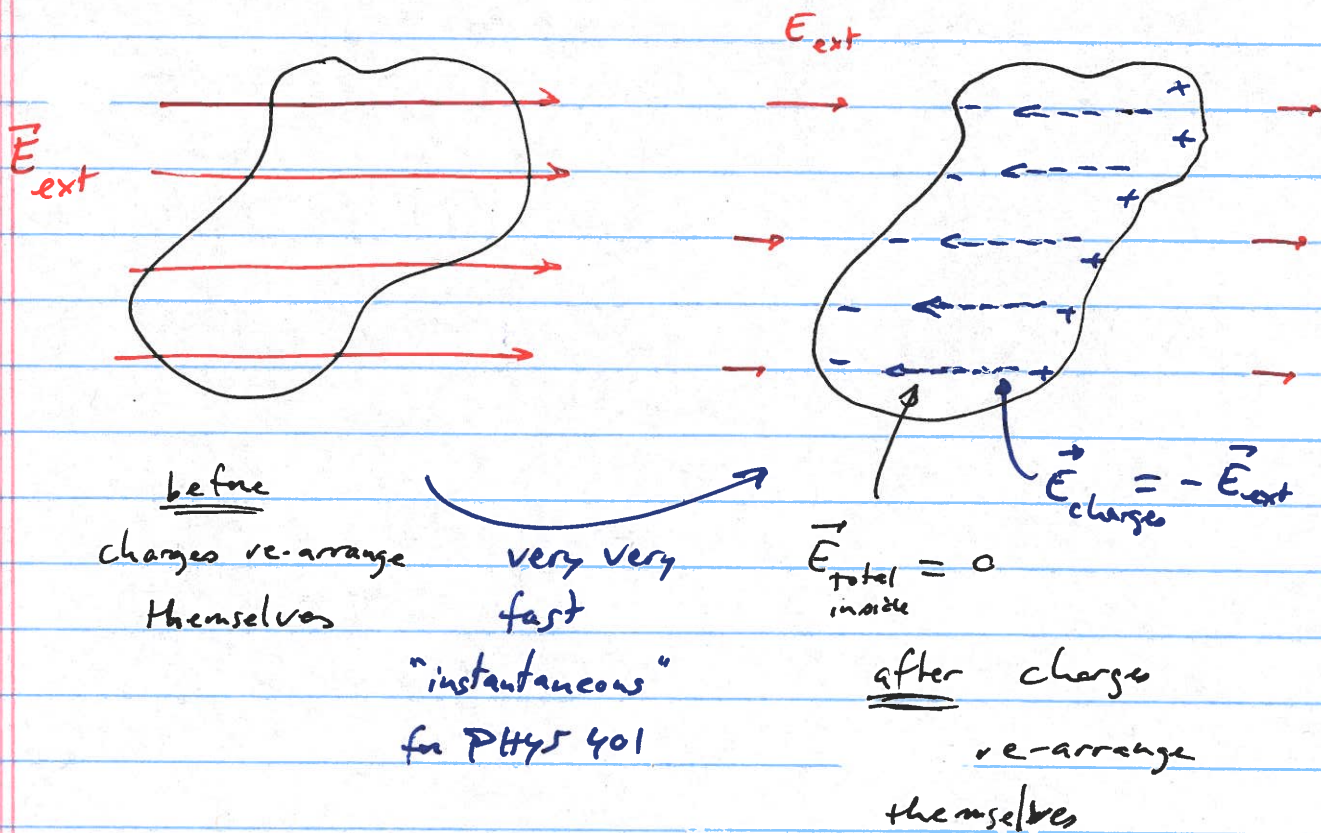 E⃗ext
before
charges re-arrange
themselves
very very
fast
"instantaneous"
for PHYS 401
Eext
- + - + - + - + - + - +
E⃗charges = - E⃗ext
E⃗total inside = 0
after charges
re-arrange
themselves